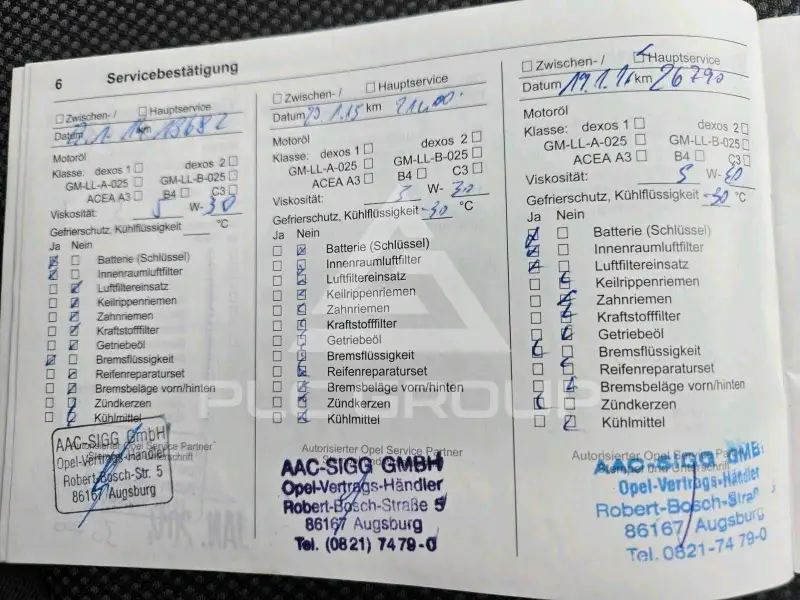 6 Servicebestätigung
Zwischen- / Hauptservice
Datum km 13682
Motoröl
Klasse: dexos 1 dexos 2
GM-LL-A-025 GM-LL-B-025
ACEA A3 B4 C3
Viskosität: 5 W- 30
Gefrierschutz, Kühlflüssigkeit °C
Ja Nein
Batterie (Schlüssel)
Innenraumluftfilter
Luftfiltereinsatz
Keilrippenriemen
Zahnriemen
Kraftstofffilter
Getriebeöl
Bremsflüssigkeit
Reifenreparaturset
Bremsbeläge vorn/hinten
Zündkerzen
Kühlmittel
Autorisierter Opel Service Partner
AAC-SIGG GmbH
Opel-Vertrags-Händler
Robert-Bosch-Str. 5
86167 Augsburg
Zwischen- / Hauptservice
Datum km
Motoröl
Klasse: dexos 1 dexos 2
GM-LL-A-025 GM-LL-B-025
ACEA A3 B4 C3
Viskosität: 5 W- 30
Gefrierschutz, Kühlflüssigkeit -30 °C
Ja Nein
Batterie (Schlüssel)
Innenraumluftfilter
Luftfiltereinsatz
Keilrippenriemen
Zahnriemen
Kraftstofffilter
Getriebeöl
Bremsflüssigkeit
Reifenreparaturset
Bremsbeläge vorn/hinten
Zündkerzen
Kühlmittel
Autorisierter Opel Service Partner
AAC-SIGG GMBH
Opel-Vertrags-Händler
Robert-Bosch-Straße 5
86167 Augsburg
Tel. (0821) 74 79-0
Zwischen- / Hauptservice
Datum km 26790
Motoröl
Klasse: dexos 1 dexos 2
GM-LL-A-025 GM-LL-B-025
ACEA A3 B4 C3
Viskosität: 5 W- 30
Gefrierschutz, Kühlflüssigkeit -30 °C
Ja Nein
Batterie (Schlüssel)
Innenraumluftfilter
Luftfiltereinsatz
Keilrippenriemen
Zahnriemen
Kraftstofffilter
Getriebeöl
Bremsflüssigkeit
Reifenreparaturset
Bremsbeläge vorn/hinten
Zündkerzen
Kühlmittel
Autorisierter Opel Service
AAC SIGG GMB
Opel-Vertrags-Händler
Robert-Bosch-Straß
86167 Augsburg
Tel. 0821-74 79-0
PLC GROUP